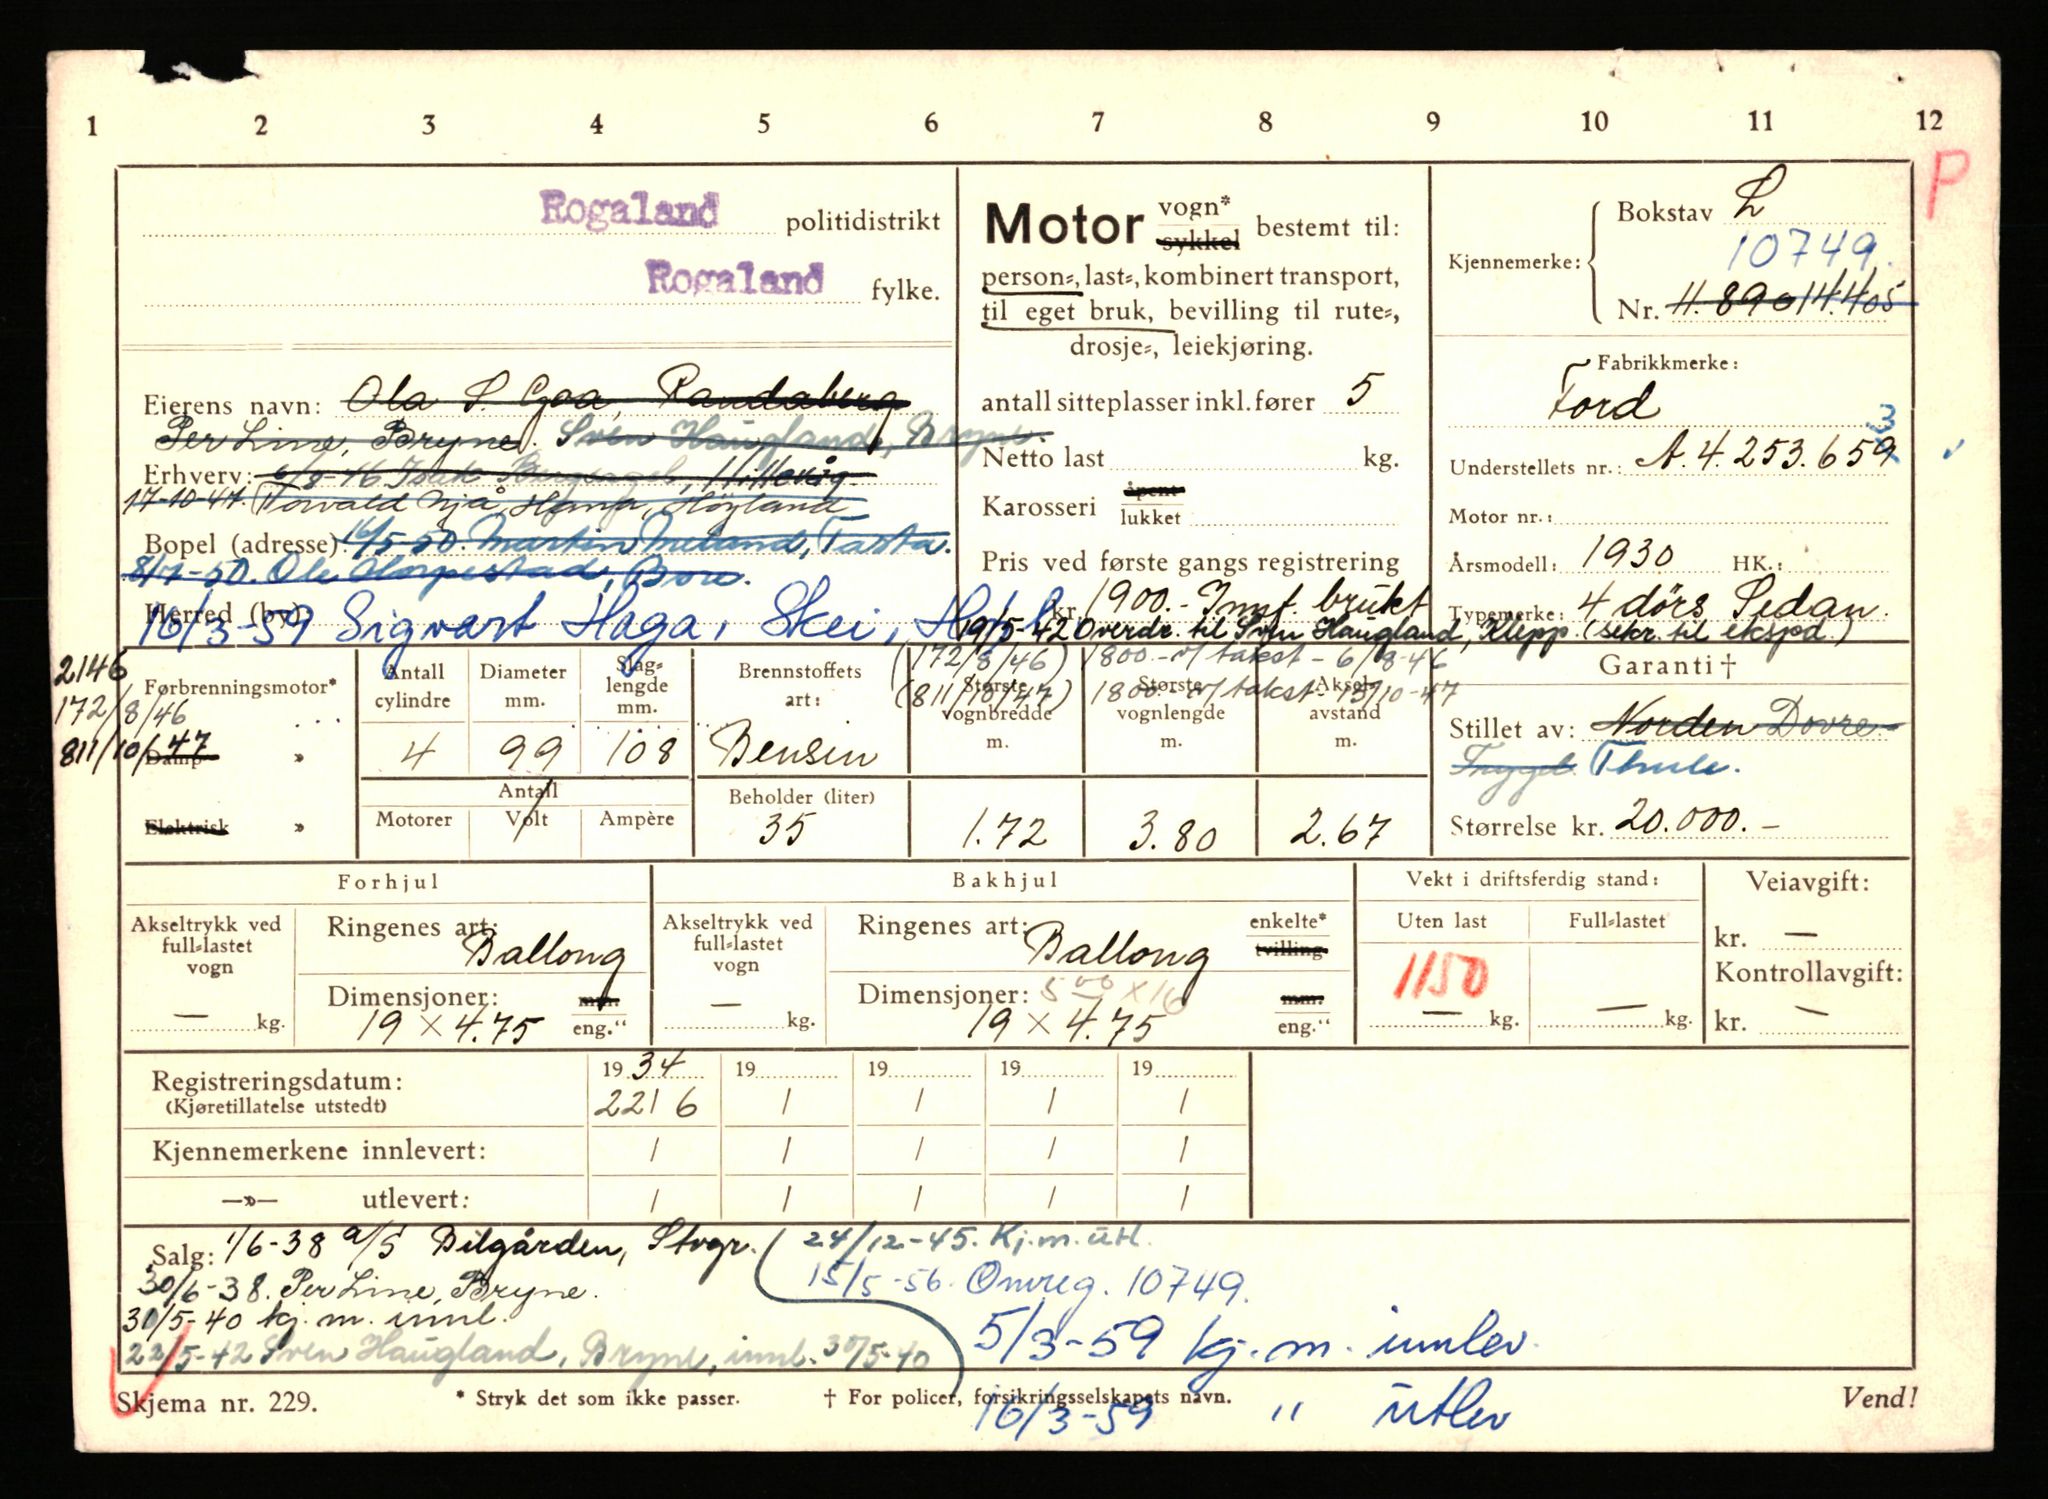 1 2 3 4 5 6 7 8 9 10 11 12
P
Rogaland politidistrikt
Rogaland fylke.
Eierens navn: Ola S. Goa, Randaberg
Per Line, Bryne. Sven Haugland, Bryne.
Erhverv: 6/8-46 Isak Hillevåg
17-10-47. Torvald Njå, Hana, Høyland
Bopel (adresse) 16/5-50. Martin Meland, Tasta.
8/7-50. Ole Horpestad, Bore.
Herred (by):
16/3-59 Sigvart Haga, Skei,
Motor vogn* sykkel bestemt til:
person-, last-, kombinert transport,
til eget bruk, bevilling til rute-,
drosje-, leiekjøring.
antall sitteplasser inkl. fører 5
Netto last kg.
Karosseri åpent lukket
Pris ved første gangs registrering
kr. 1900.- Innf. brukt
19/5-42 Overdr. til Sven Haugland, Klepp. (sekr. til eksped.)
Kjennemerke: Bokstav L
10749.
Nr. 11.890 14.405
Fabrikkmerke:
Ford
3
Understellets nr.: A.4.253.659
Motor nr.:
Årsmodell: 1930 HK.:
Typemerke: 4 dørs Sedan.
2146
172/8/46
811/10/47
Forbrenningsmotor*
Damp »
Elektrisk »
Antall cylindre
4
Diameter mm.
99
Slaglengde mm.
108
Antall
Motorer Volt Ampère
Brennstoffets art:
Bensin
Beholder (liter)
35
(172/8/46) 1800.- v/takst - 6/8-46
(811/10/47) 1800.- v/takst - 13/10-47
Største vognbredde m.
1.72
Største vognlengde m.
3.80
Akselavstand m.
2.67
Garanti †
Stillet av: Norden Dovre
Trygd. Thule.
Størrelse kr. 20.000.-
Forhjul
Akseltrykk ved full-lastet vogn
— kg.
Ringenes art: Ballong
Dimensjoner: mm. eng."
19 × 4.75
Bakhjul
Akseltrykk ved full-lastet vogn
— kg.
Ringenes art: Ballong
enkelte* tvilling
Dimensjoner: 500 × 16 mm. eng."
19 × 4.75
Vekt i driftsferdig stand:
Uten last Full-lastet
1150
— kg. — kg.
Veiavgift:
kr. —
Kontrollavgift:
kr. —
Registreringsdatum: 1934 19 19 19 19
(Kjøretillatelse utstedt) 22/6 / / / /
Kjennemerkene innlevert: / / / / /
—»— utlevert: / / / / /
Salg: 1/6-38 a/s Bilgården, Stvgr.
30/6-38. Per Line, Bryne.
31/5-40 kj. m. innl.
22/5-42 Sven Haugland, Bryne, innl. 30/5-40
24/12-45. Kj. m. utl.
15/5-56. Omreg. 10749.
5/3-59 kj. m. innlev.
16/3-59 " utlev
Skjema nr. 229.
* Stryk det som ikke passer.
† For policer, forsikringsselskapets navn.
Vend!